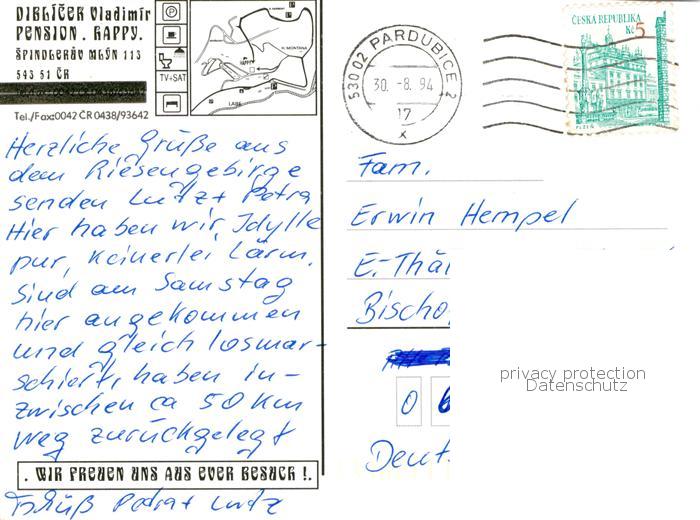 DIBLÍČEK Vladimír
PENSION. HAPPY.
ŠPINDLERŮV MLÝN 113
543 51 ČR
Tel./Fax:0042 ČR 0438/93642
TV+SAT
H. MONTANA
HAPPY
LABE
Herzliche Grüße aus
dem Riesengebirge
senden Lutz + Petra
Hier haben wir Idylle
pur, keinerlei Lärm.
Sind am Samstag
hier angekommen
und gleich losmar-
schiert, haben in-
zwischen ca 50 km
weg zurückgelegt
. WIR FREUEN UNS AUS EUER BESUCH !.
Gruß Petra + Lutz
530 02 PARDUBICE 2
30. -8. 94
17
ČESKÁ REPUBLIKA
Kč 5
PLZEŇ
Fam.
Erwin Hempel
E.-Thäl
Bischo
0 6
Deut
privacy protection
Datenschutz